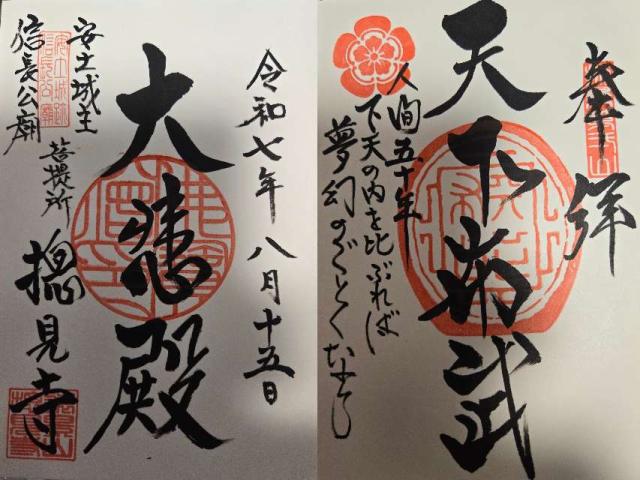 奉拝
天下布武
人間五十年
下天の内を比ぶれば
夢幻のごとくなり
令和七年八月十五日
大悲殿
安土城主
信長公廟
菩提所
摠見寺